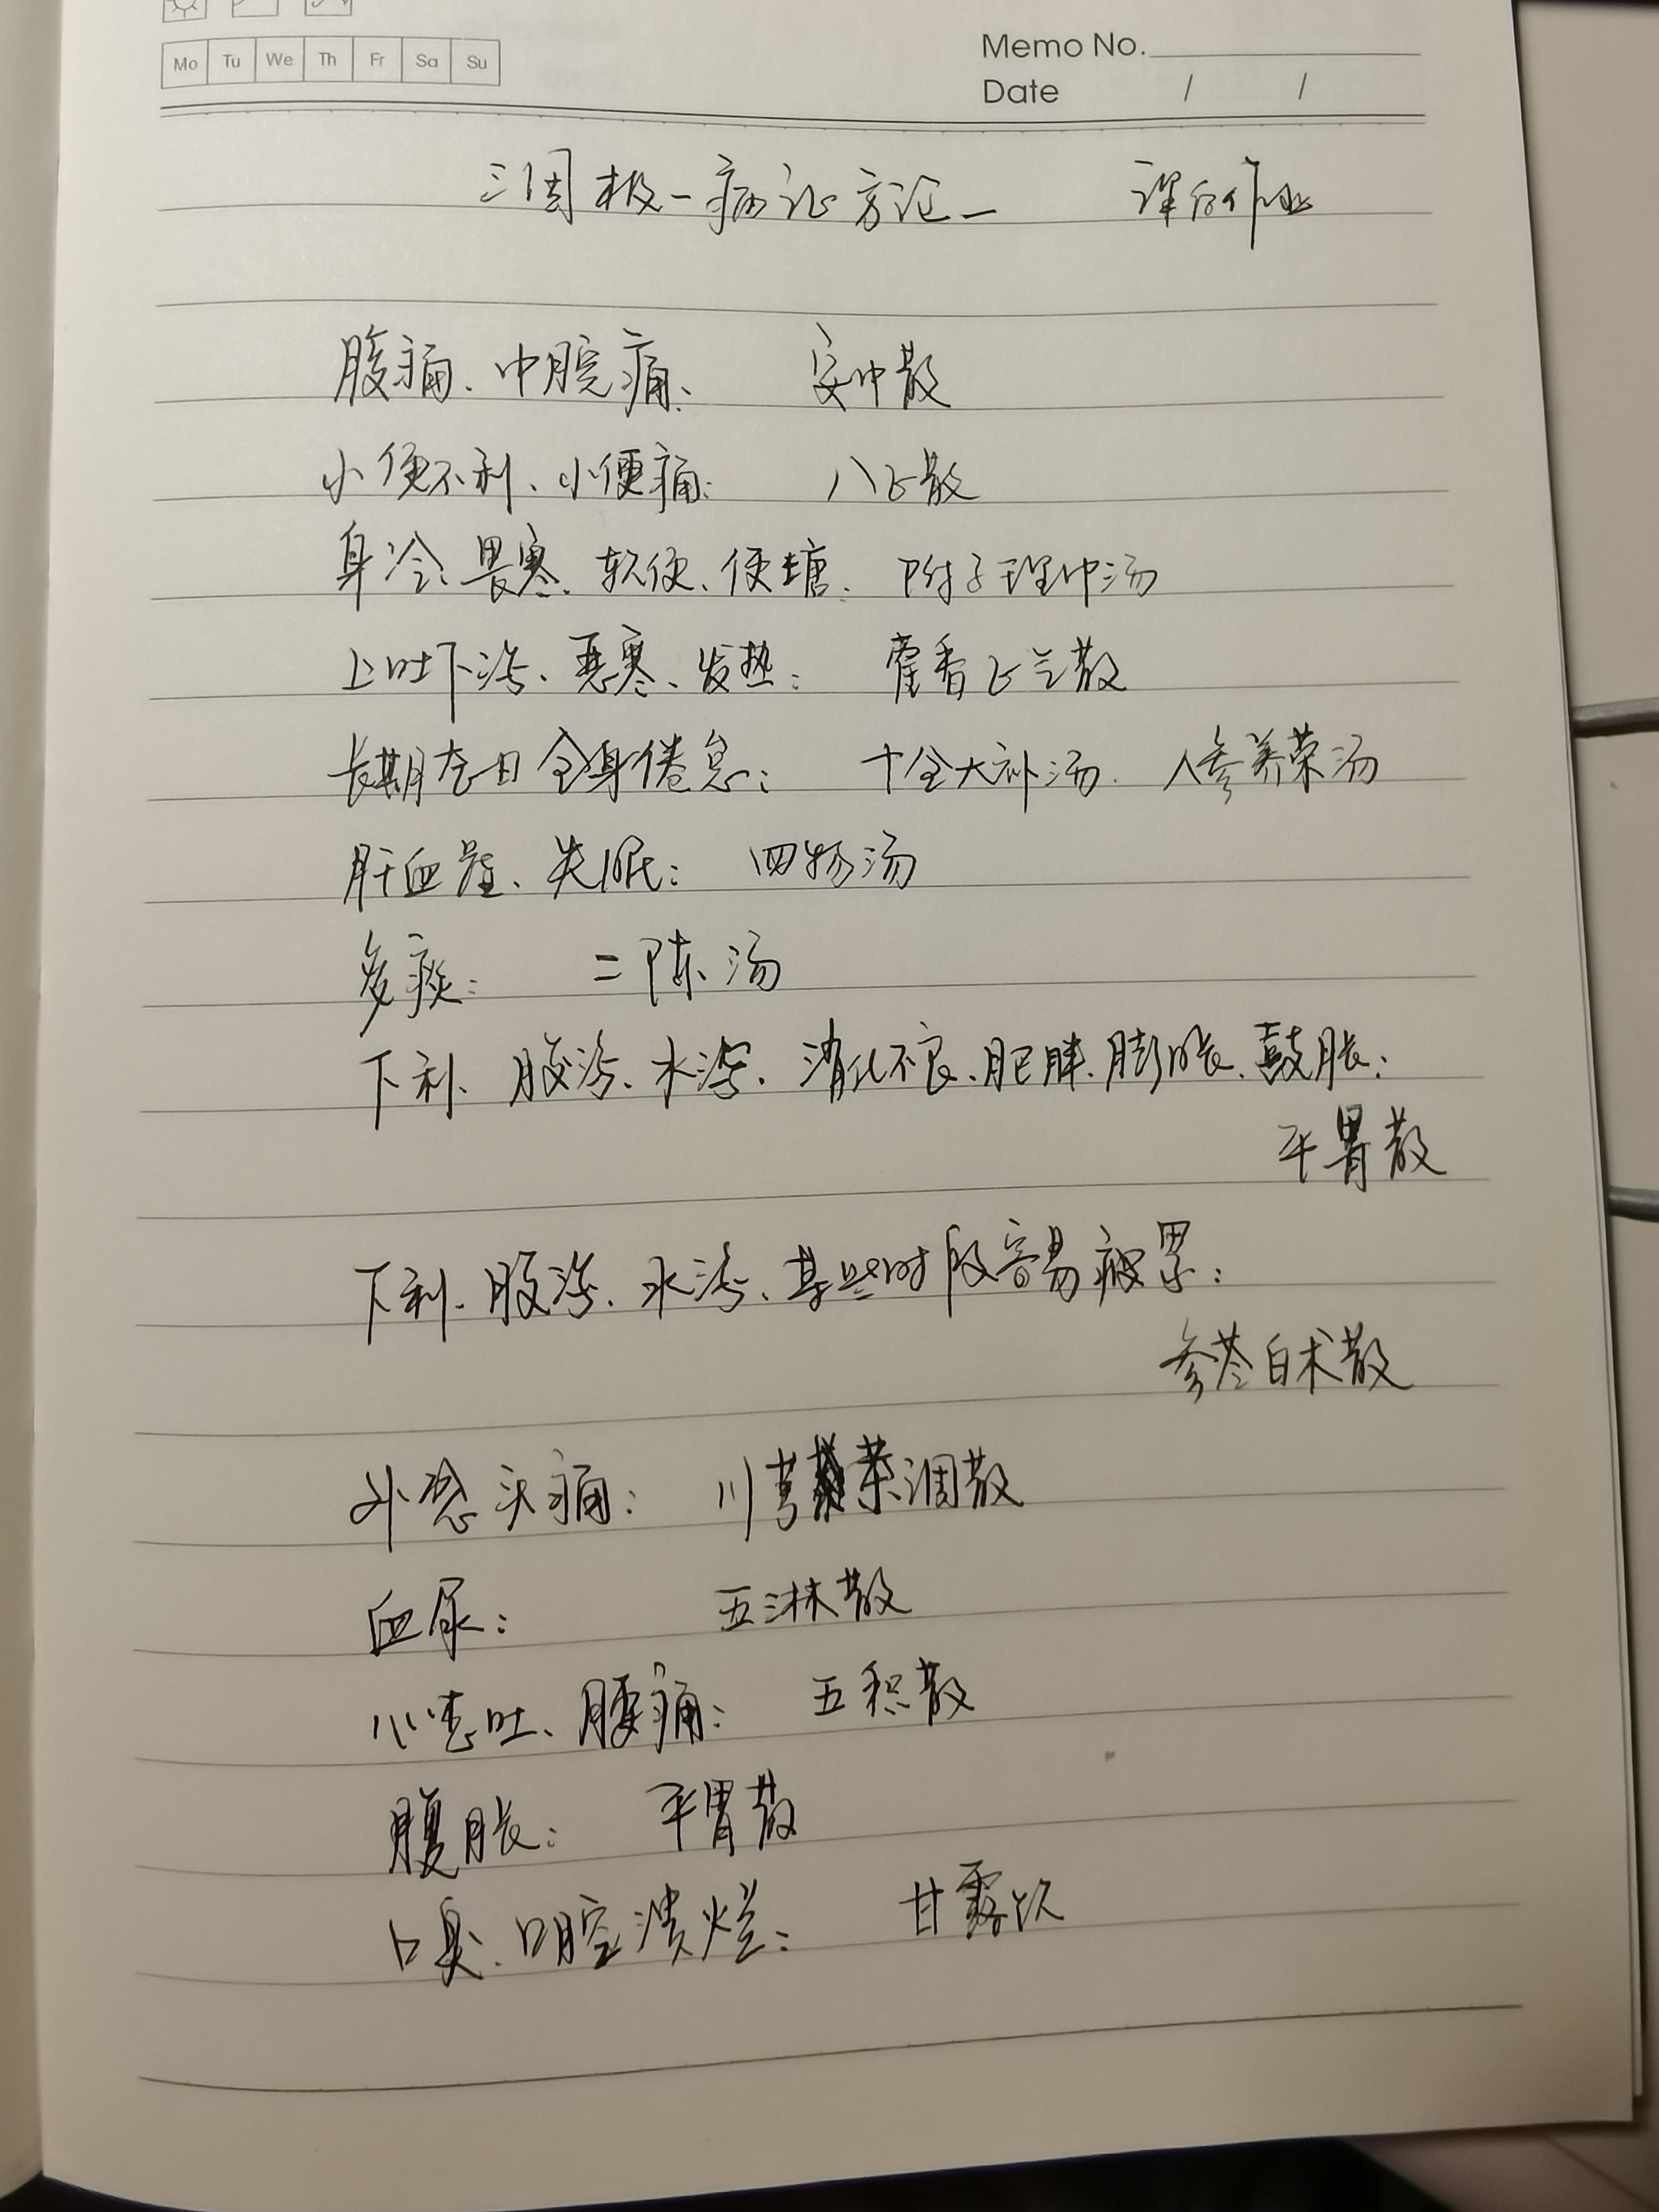 Mo Tu We Th Fr Sa Su
Memo No.
Date / /
三因极一病证方论一 课后作业
腹痛、中脘痛、 安中散
小便不利、小便痛: 八正散
身冷、畏寒、软便、便溏: 附子理中汤
上吐下泻、恶寒、发热: 藿香正气散
长期左日全身倦怠: 十全大补汤. 人参养荣汤
肝血虚、失眠: 四物汤
多痰: 二陈汤
下利、腹泻、水泻、消化不良、肥胖、膨胀、鼓胀:
平胃散
下利、腹泻、水泻、某些时段容易疲累:
参苓白术散
外感头痛: 川芎茶调散
血尿: 五淋散
心恶吐、腰痛: 五积散
腹胀: 平胃散
口臭、口腔溃烂: 甘露饮